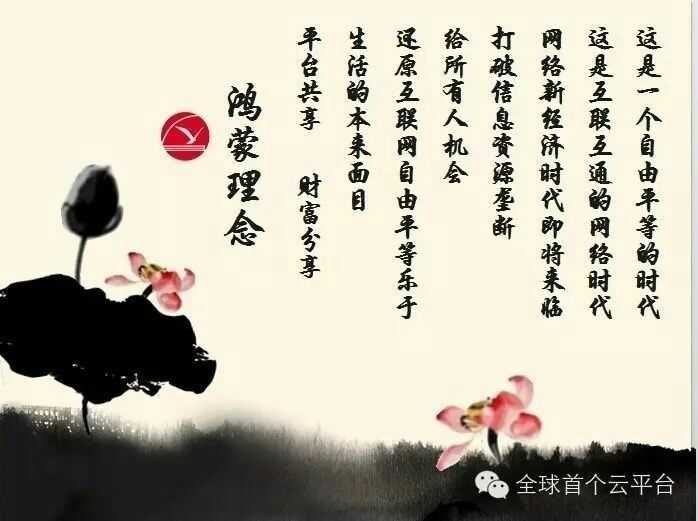 这是一个自由平等的时代
这是互联互通的网络时代
网络新经济时代即将来临
打破信息资源垄断
给所有人机会
还原互联网自由平等乐于
生活的本来面目
平台共享 财富分享
鸿蒙理念
全球首个云平台